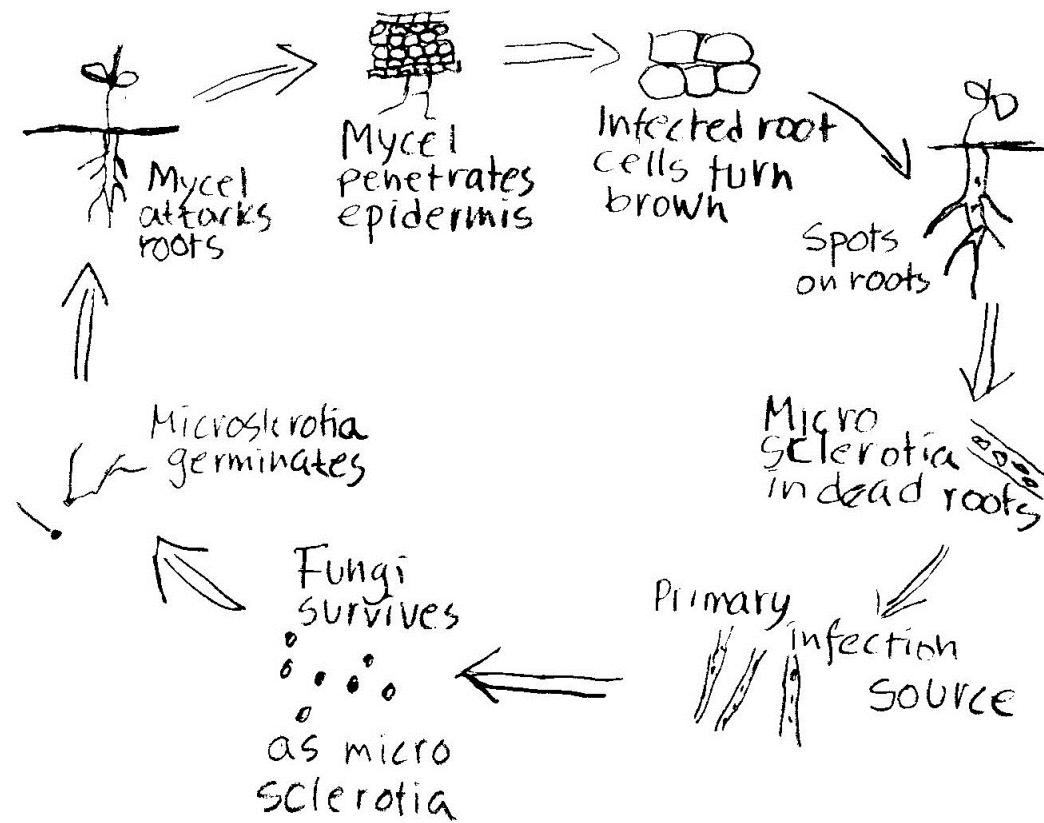 Mycel
attacks
roots
Mycel
penetrates
epidermis
Infected root
cells turn
brown
Spots
on roots
Micro
sclerotia
in dead roots
Primary
infection
source
Fungi
survives
as micro
sclerotia
Microslerotia
germinates